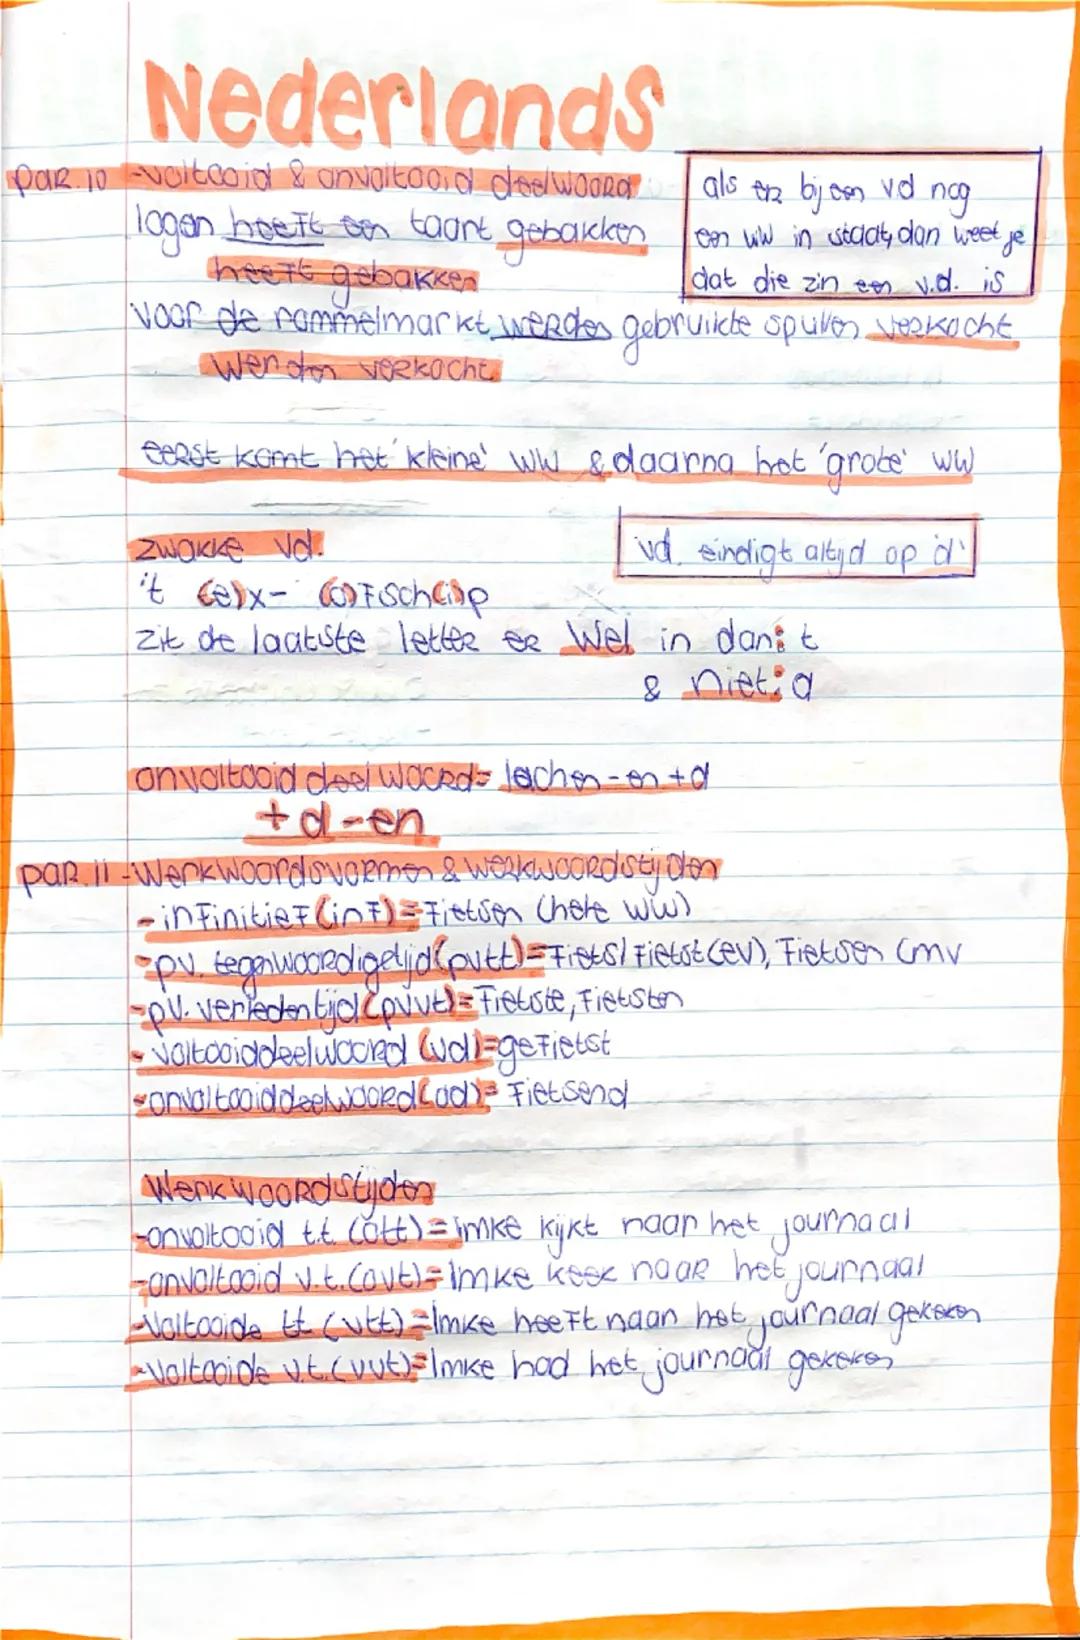 Nederlands
par. 10 - voltooid & onvoltooid deelwoord
logan heeft een taart gebakken
heeft gebakken
als er bij een vd nog
een ww in staat, dan weet je
dat die zin een v.d. is
voor de rommelmarkt werden gebruikte spullen verkocht
werden verkocht
eerst komt het 'kleine' ww & daarna het 'grote' ww
zwakke vd.
vd. eindigt altijd op 'd'
't (e)x- (o)fsch(i)p
zit de laatste letter er wel in dan: t
& niet: d
onvoltooid deelwoord= lachen -en +d
+d -en
par. 11 - werkwoordsvormen & werkwoordstijden
- infinitief (inf) = fietsen (hele ww)
- pv. tegenwoordigetijd (pvtt) = fiets/fietst (ev), fietsen (mv
- pv. verledentijd (pvvt) = fietste, fietsten
- voltooiddeelwoord (vd) = gefietst
- onvoltooiddeelwoord (od) = fietsend
Werkwoordstijden
- onvoltooid t.t. (ott) = imke kijkt naar het journaal
- onvoltooid v.t. (ovt) = Imke keek naar het journaal
- Voltooide tt (vtt) = Imke heeft naar het journaal gekeken
- Voltooide v.t. (vvt) = Imke had het journaal gekeken